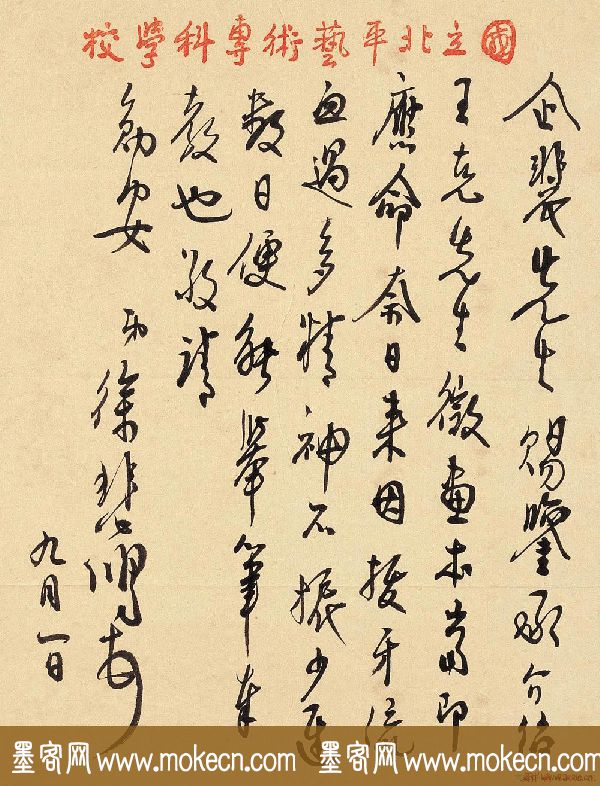 國立北平藝術專科學校
企裴先生賜鑒承介紹
王克先生徵畫本當即
應命奈日來因拔牙流
血過多精神不振少遲
數日便能舉筆奉
教也敬請
勛安 弟徐悲鴻
九月一日
墨客网 www.mokecn.com 墨客网 www.mokecn.com